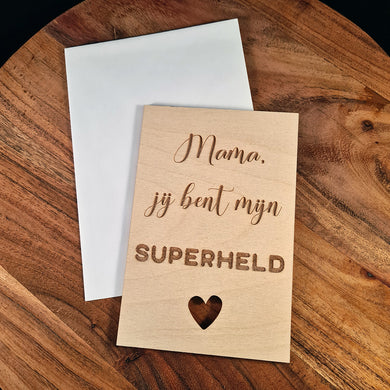 Mama,
jij bent mijn
SUPERHELD